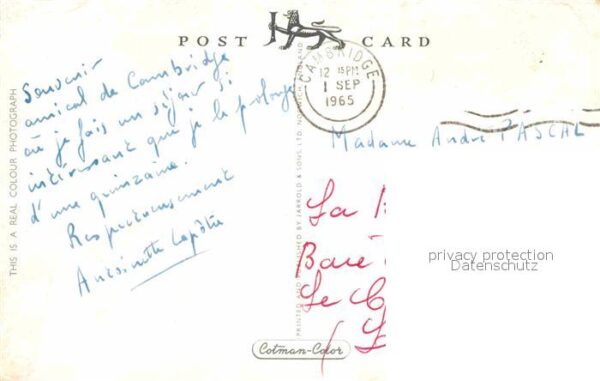 POST CARD
CAMBRIDGE
12 15 PM
1 SEP
1965
Souvenir
amical de Cambridge
où je fais un séjour si
intéressant que je le prolonge
d'une quinzaine.
Respectueusement
Madame André PASCAL
La
Baie
Le C
privacy protection
Datenschutz
THIS IS A REAL COLOUR PHOTOGRAPH
PRINTED AND PUBLISHED BY JARROLD & SONS LTD. NORWICH, ENGLAND
Cotman-Color